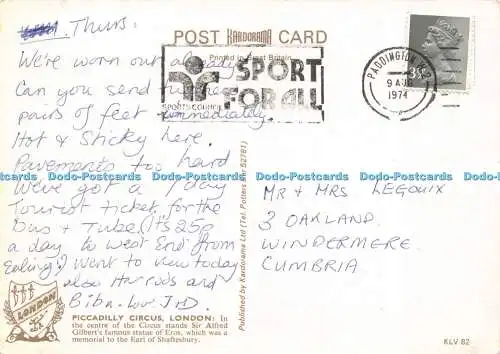 Thurs.
We're worn out already!
Can you send further
pairs of feet immediately.
Hot & Sticky here.
Pavements too hard
We've got a 7 day
Tourist ticket for the
Bus + Tube. (It's 25p
a day to West End from
Ealing!) Went to Kew today
also Harrods and
Biba. Love J+D
POST KARDORAMA CARD
Printed in Great Britain
SPORTS COUNCIL
SPORT
FOR ALL
PADDINGTON W.2
9 AUG
1974
3½P
Published by Kardorama Ltd (Tel. Potters Bar 52781)
Mr + Mrs LEGOUIX
3 OAKLAND.
WINDERMERE
CUMBRIA
LONDON
PICCADILLY CIRCUS, LONDON: In
the centre of the Circus stands Sir Alfred
Gilbert's famous statue of Eros, which was a
memorial to the Earl of Shaftesbury.
KLV 82
Dodo-Postcards Dodo-Postcards Dodo-Postcards Dodo-Postcards Dodo-Postcards Dodo-Postcards